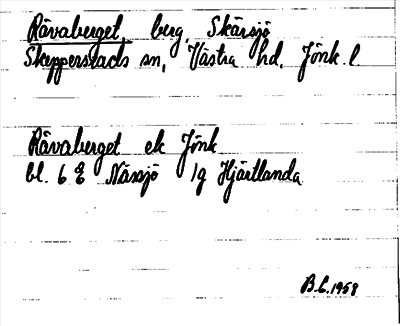 Rävaberget, berg, Skärsjö
Skepperstads sn, Västra hd, Jönk. l
Rävaberget ek Jönk
bl. 6 E Nässjö lg Hjärtlanda
B.C. 1958